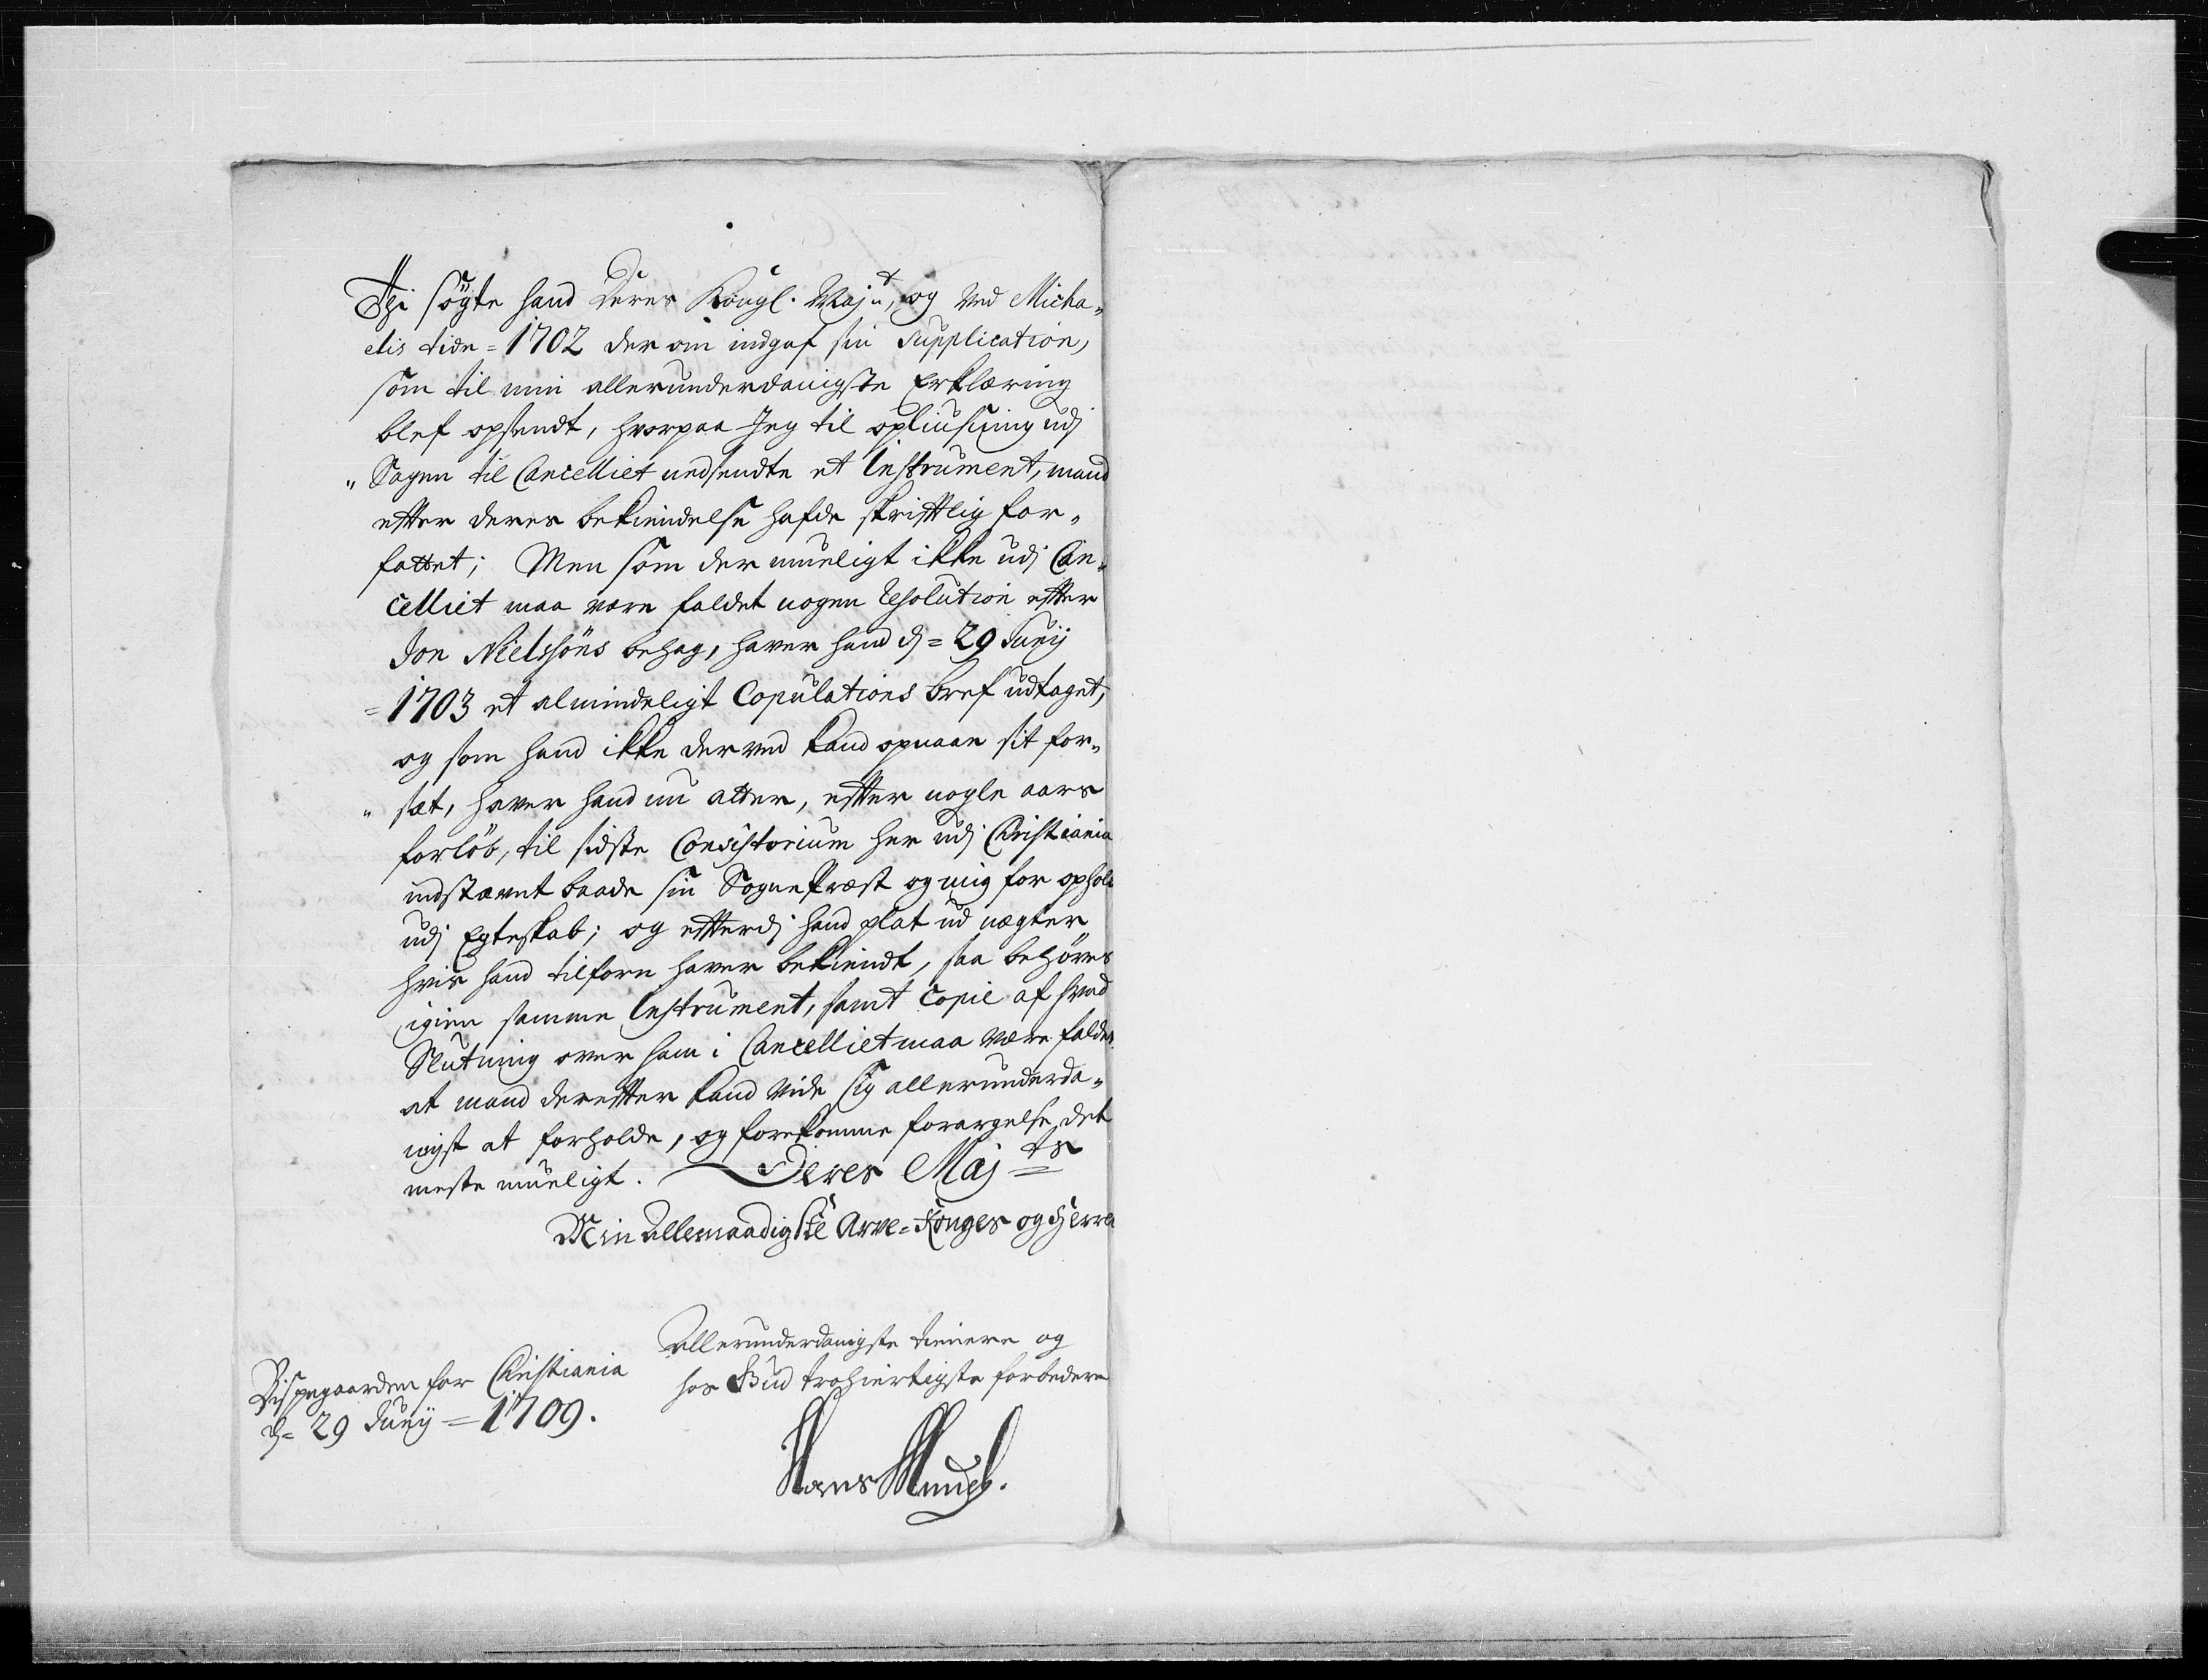 Thi søgte hand Deres Kongl. Majt, og ved Micha„
elis tide = 1702 der om indgaf sin Supplication,
som til min allerunderdanigste Erklæring
blef opsendt, hvorpaa Jeg til opliusning udj
„ Sagen til Cancelliet nedsendte et Instrument, mand
efter deres bekiendelse hafde skriftlig for„
fattet; Men som der mueligt ikke udj Can„
celliet maa være faldet nogen Resolution efter
Jon Nielssøns behag, haver hand d = 29 Junij
= 1703 et almindeligt Copulations bref udtaget,
og som hand ikke derved kand opnaae sit for„
„ sæt, haver hand nu atter, efter nogle aars
forløb, til sidste Consistorium her udj Christiania
indstævnt baade sin Sognepræst og mig for ophold
udj Egteskab; og efterdj hand plat ud nægter
hvis hand tilforn haver bekiendt, saa behøves
igien samme Instrument, samt Copie af hvad
Slutning over ham i Cancelliet maa være faldet
at mand derefter kand vide sig allerunderda„
nigst at forholde, og forekomme forargelse det
meste mueligt. Deres Majts
Min Allernaadigste Arve=Konges og Herre
Allerunderdanigste tienere og
hos Gud trohiertigste forbedere
Bispegaarden for Christiania
d = 29 Junij = 1709.
Hans Munch.